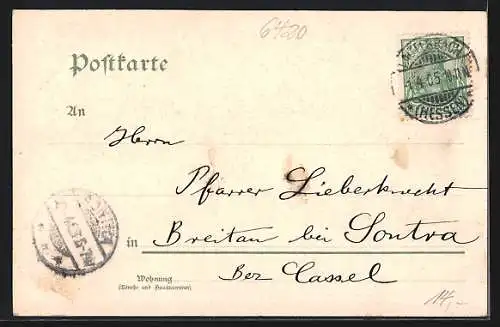 6420
Postkarte
An
Herrn
Pfarrer Lieberknecht
in Breitau bei Sontra
Bez Cassel
Wohnung
(Straße und Hausnummer)
(HESSEN)
14,-